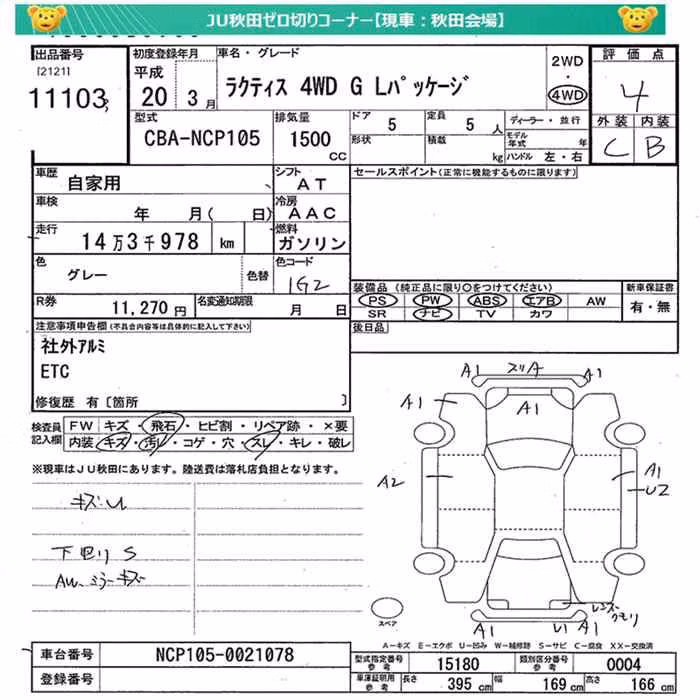 JU秋田ゼロ切りコーナー【現車：秋田会場】
出品番号 初度登録年月 車名・グレード 2WD 評価点
[2121] 平成 ・
11103 20 年 3 月 ラクティス 4WD G Lパッケージ 4WD 4
型式 排気量 ドア 5 定員 5 人 ディーラー・並行 外装 内装
CBA-NCP105 1500 CC 形状 積載 kg モデル年式 年 C B
ハンドル 左・右
車歴 自家用 シフト AT セールスポイント(正常に機能するものに限ります)
車検 年 月( 日) 冷房 AAC
走行 14万3千978 km 燃料 ガソリン
色 グレー 色替 色コード 1G2
装備品 (純正品に限り○をつけてください) 新車保証書
R券 11,270円 名変通知期限 月 日 PS PW ABS エアB AW 有・無
SR ナビ TV カワ
注意事項申告欄(不具合内容等は具体的に記入して下さい) 後日品
社外アルミ
ETC
修復歴 有〔箇所 〕
検査員記入欄 FW キズ・飛石・ヒビ割・リペア跡・×要
内装 キズ・汚れ・コゲ・穴・スレ・キレ・破レ
※現車はJU秋田にあります。陸送費は落札店負担となります。
キズU
下廻りS
AW、ミラーキズ
A1 スリA A1
A1 A1
A2 A1
U2
レンズクモリ
A1 U1 A1
スペア
A－キズ E－エクボ U－凹み W－補修跡 S－サビ C－腐食 XX－交換済
車台番号 NCP105-0021078 型式指定番号 参考 15180 類別区分番号 参考 0004
登録番号 車庫証明用 参考 長さ 395 cm 幅 169 cm 高さ 166 cm